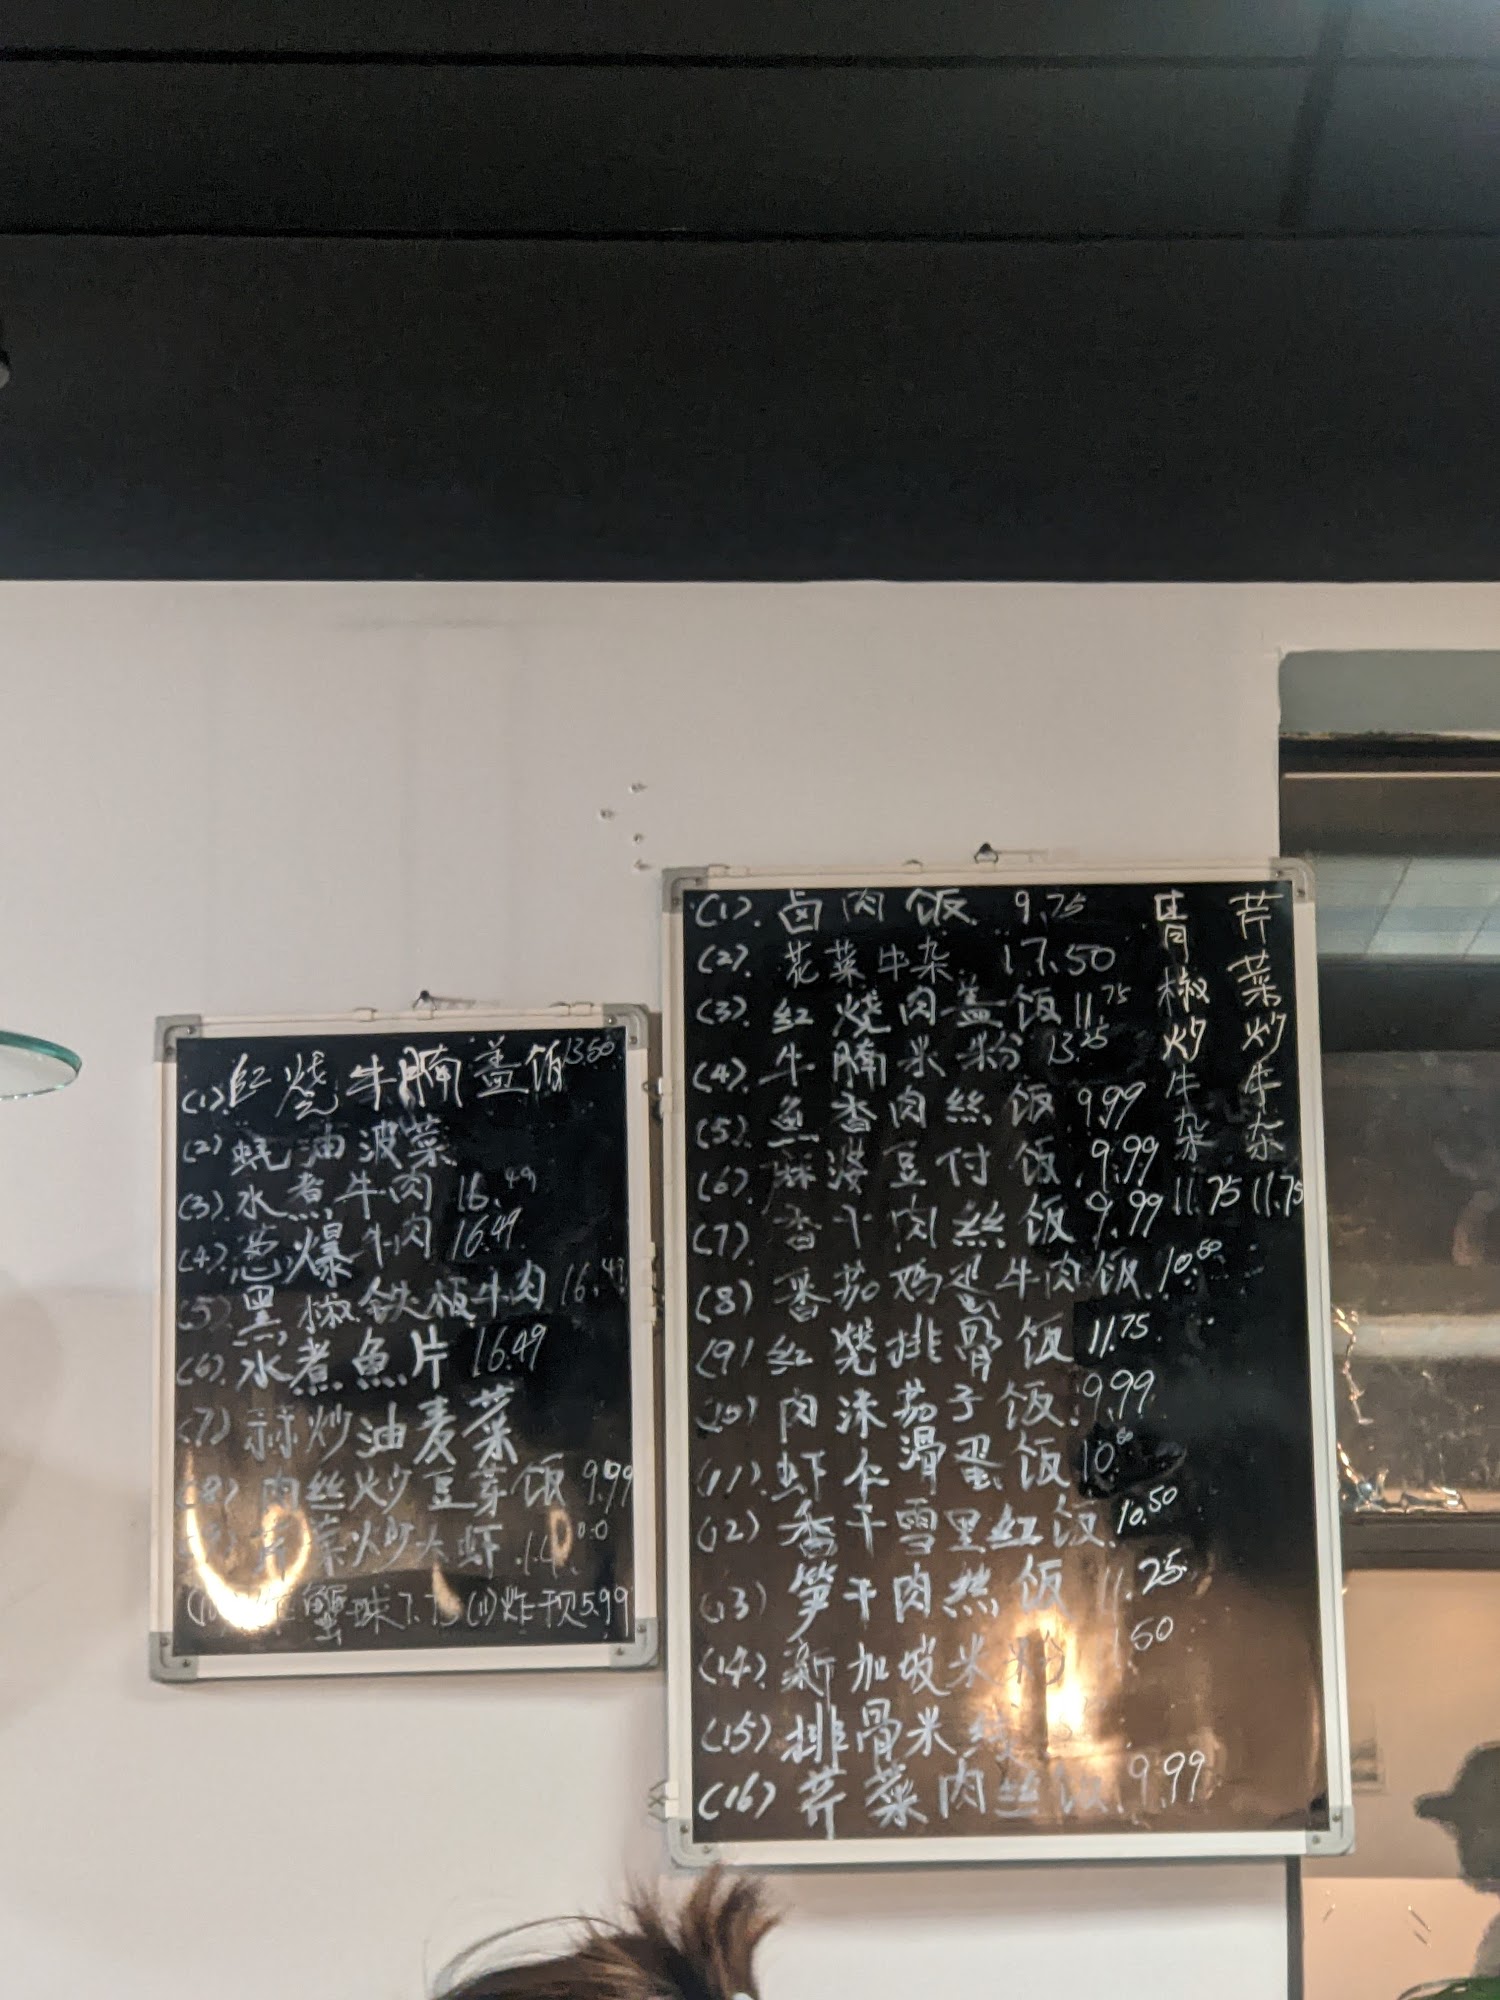 (1).红烧牛腩盖饭 13.50
(2) 蚝油菠菜
(3).水煮牛肉 16.49
(4).葱爆牛肉 16.49
(5) 黑椒铁板牛肉 16.49
(6).水煮魚片 16.49
(7) 蒜炒油麦菜
(8) 肉丝炒豆芽饭 9.99
芹菜炒大虾 14.00
蟹球 7.75 (11)炸干贝 5.99
(1).卤肉饭. 9.75
(2). 花菜牛杂. 17.50
(3).红烧肉盖饭 11.75
(4).牛腩米粉 13.25
(5).魚香肉丝饭 9.99
(6).麻婆豆付饭 9.99
(7).香干肉丝饭 9.99
(8) 番茄鸡蛋牛肉饭 10.50
(9) 红烧排骨饭 11.75
(10) 肉沫茄子饭 9.99
(11) 虾仁滑蛋饭 10.50
(12) 香干雪里红饭. 10.50
(13) 笋干肉丝饭 11.25
(14).新加坡米粉
(15) 排骨米线
(16) 芹菜肉丝饭. 9.99
青椒炒牛杂 11.75
芹菜炒牛杂 11.75